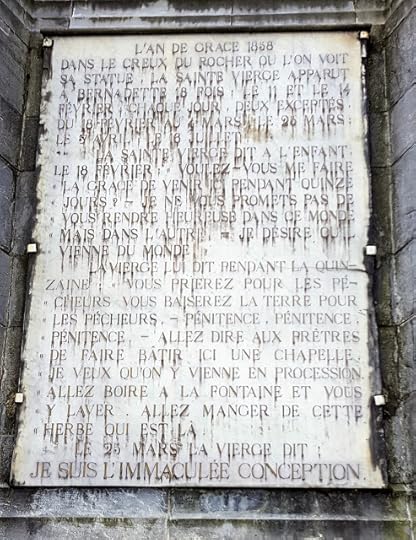 L'AN DE GRACE 1858
DANS LE CREUX DU ROCHER OU L'ON VOIT
SA STATUE, LA SAINTE VIERGE APPARUT
A BERNADETTE 18 FOIS : LE 11 ET LE 14
FÉVRIER ; CHAQUE JOUR, DEUX EXCEPTÉS,
DU 18 FÉVRIER AU 4 MARS ; LE 25 MARS ;
LE AVRIL ; LE 16 JUILLET.
LA SAINTE VIERGE DIT A L'ENFANT,
LE 18 FÉVRIER : " VOULEZ-VOUS ME FAIRE
" LA GRACE DE VENIR ICI PENDANT QUINZE
" JOURS ? - JE NE VOUS PROMETS PAS DE
" VOUS RENDRE HEUREUSE DANS CE MONDE
" MAIS DANS L'AUTRE ; - JE DÉSIRE QU'IL
" VIENNE DU MONDE. "
LA VIERGE LUI DIT PENDANT LA QUIN-
ZAINE : " VOUS PRIEREZ POUR LES PÉ-
" CHEURS, VOUS BAISEREZ LA TERRE POUR
" LES PÉCHEURS. - PÉNITENCE, PÉNITENCE,
" PÉNITENCE, - ALLEZ DIRE AUX PRÊTRES
" DE FAIRE BÂTIR ICI UNE CHAPELLE.
" JE VEUX QU'ON Y VIENNE EN PROCESSION.
" ALLEZ BOIRE A LA FONTAINE ET VOUS
" Y LAVER. ALLEZ MANGER DE CETTE
" HERBE QUI EST LÀ. "
LE 25 MARS LA VIERGE DIT :
" JE SUIS L'IMMACULÉE CONCEPTION. "